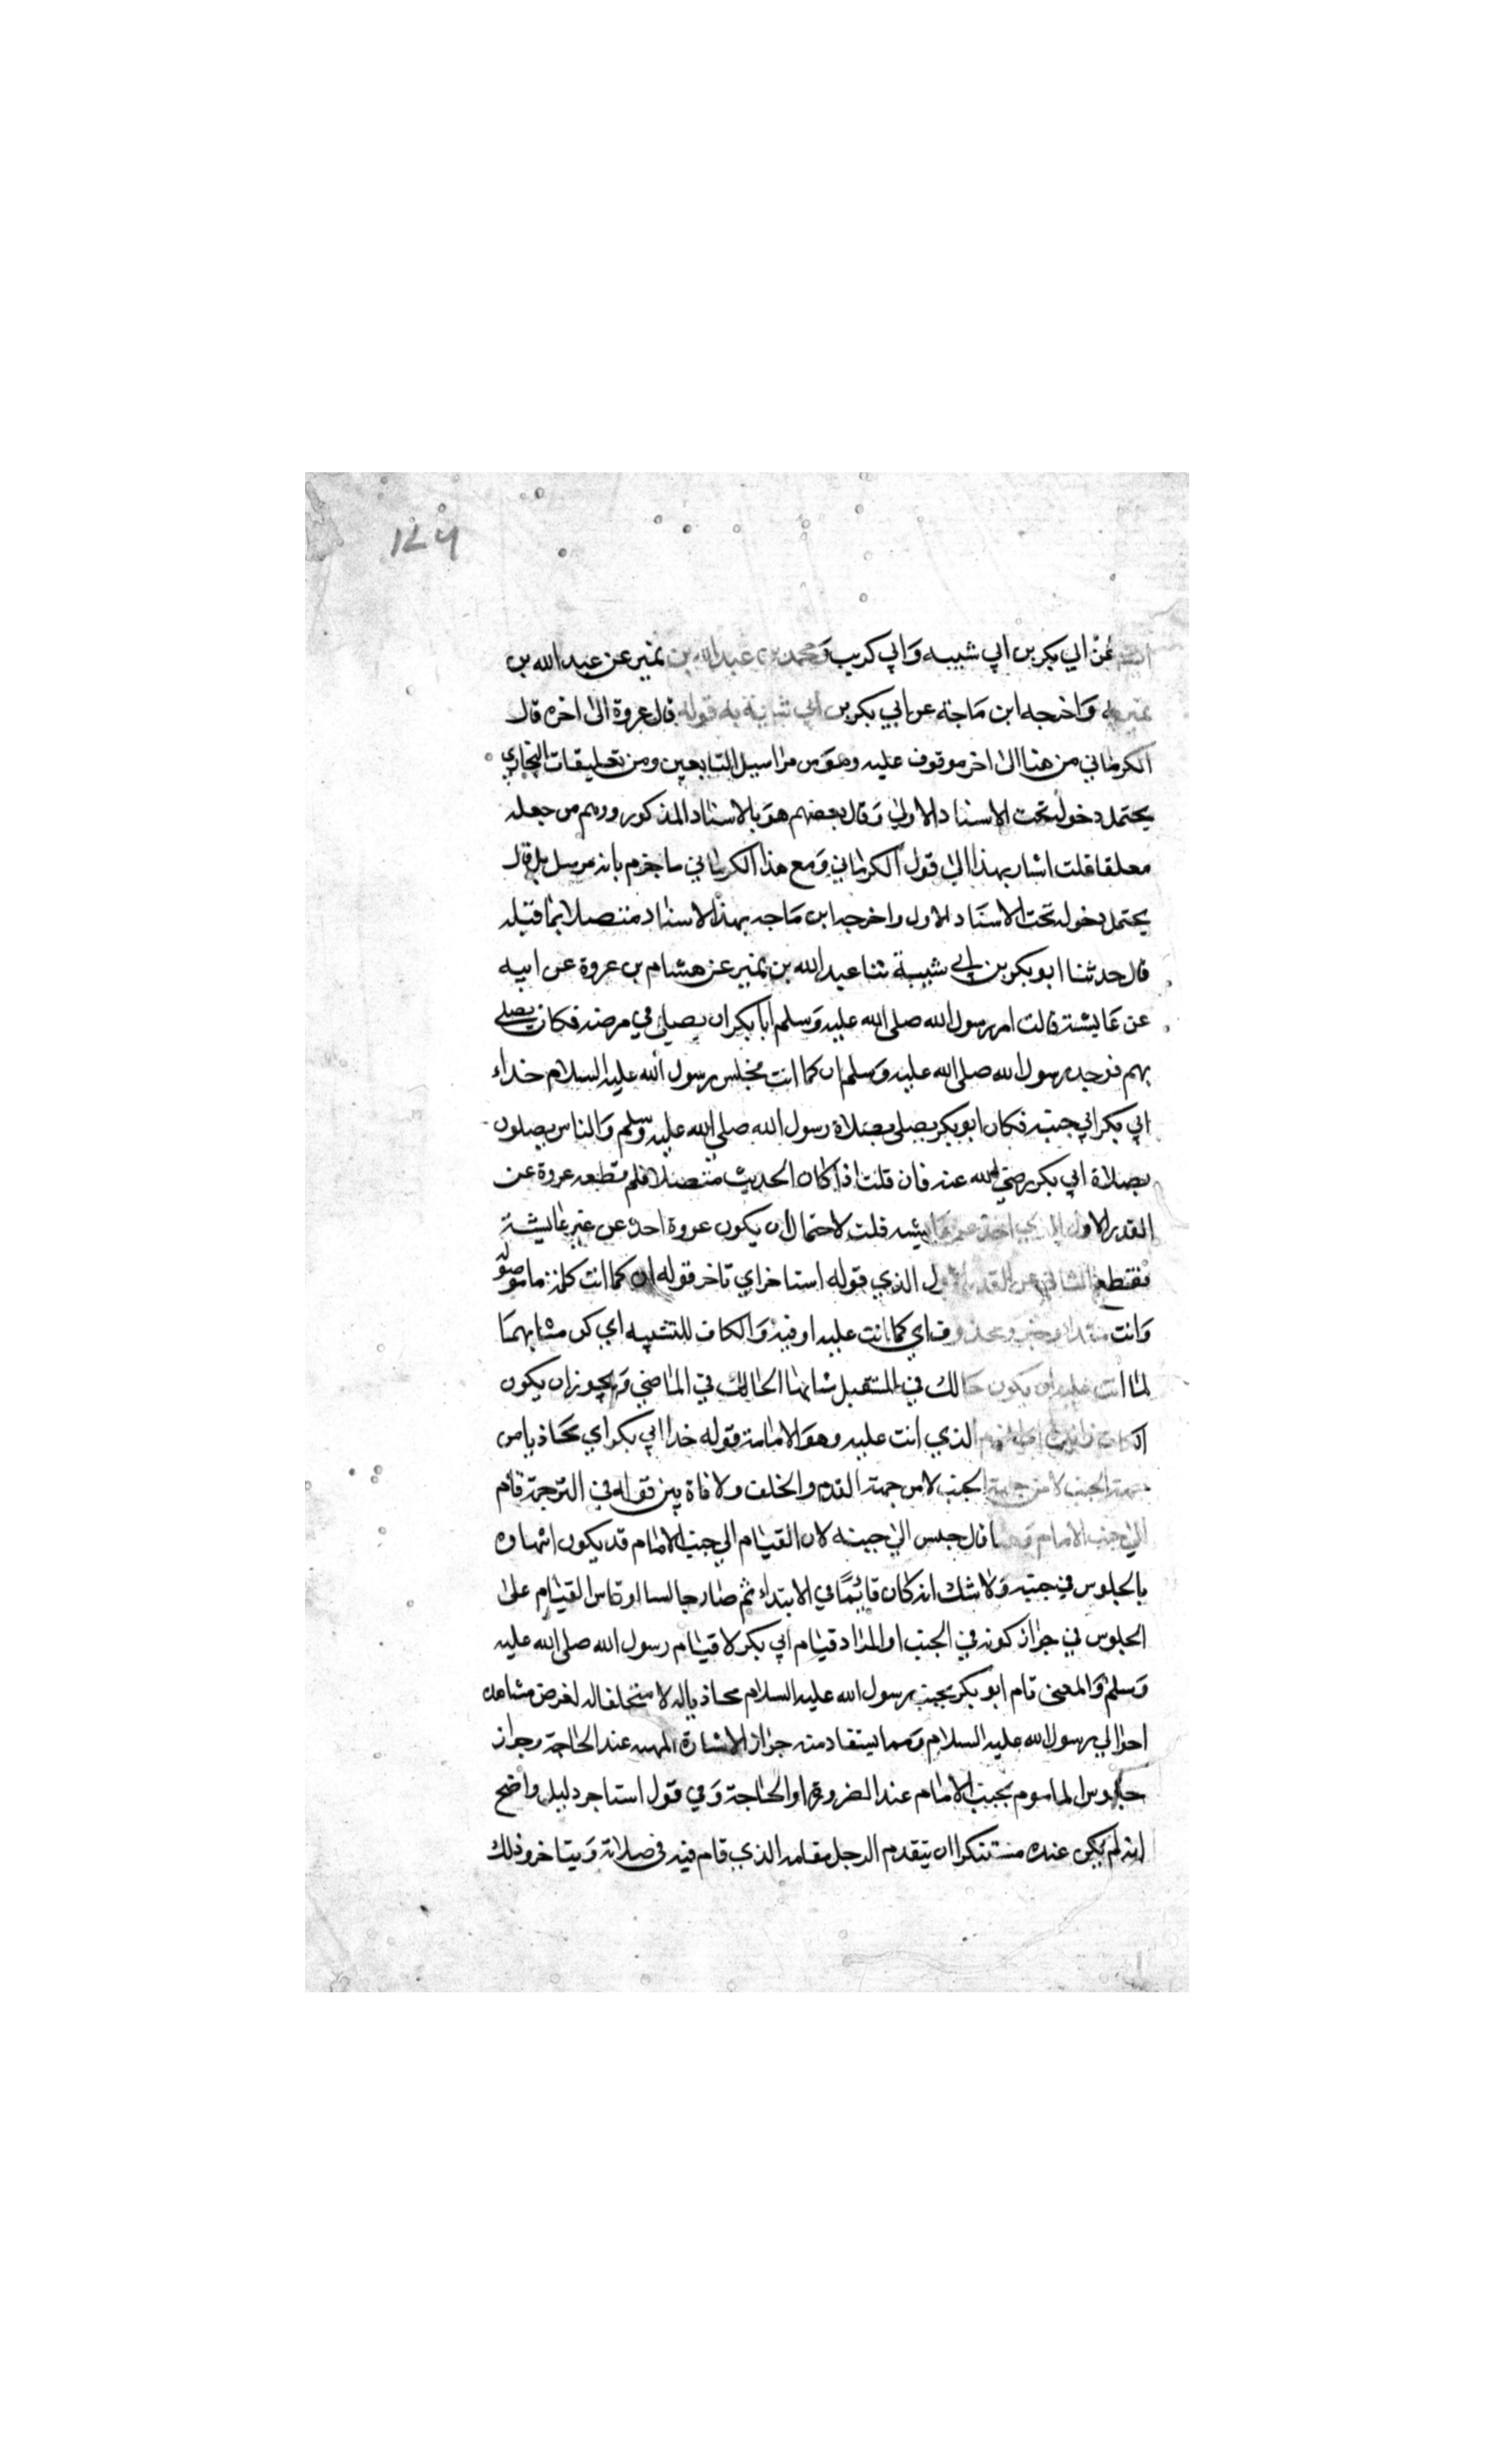 ١٤٦
عن ابي بكر بن ابي شيبه وابي كريب ومحمد بن عبدالله بن نمير عن عبد الله بن
نمير به واخرجه ابن ماجة عن ابي بكر بن ابي شيبة به قوله قال عروة الى اخره قال
الكرماني من هنا الى اخر موقوف عليه وهو من مراسيل التابعين ومن تعليقات البخاري
يحتمل دخوله تحت الاسناد الاول وقال بعضهم هو بالاسناد المذكور ووهم من جعله
معلقا قلت اشار بهذا الى قول الكرماني ومع هذا الكرماني ما جزم بانه مرسل بل قال
يحتمل دخوله تحت الاسناد الاول واخرجه ابن ماجه بهذا الاسناد متصلا بما قبله
قال حدثنا ابو بكر بن ابي شيبة ثنا عبد الله بن نمير عن هشام بن عروة عن ابيه
عن عايشة قالت امر رسول الله صلى الله عليه وسلم ابا بكر ان يصلي في مرضه فكان يصلي
بهم فوجد رسول الله صلى الله عليه وسلم ان كما انت فجلس رسول الله عليه السلام حذاء
ابي بكر الي جنبه فكان ابو بكر يصلي بصلاة رسول الله صلى الله عليه وسلم والناس يصلون
بصلاة ابي بكر رضي الله عنه فان قلت اذا كان الحديث متصلا فلم قطعه عروة عن
القدر الاول الذي اخذه عن عايشه قلت لاحتمال ان يكون عروة اخذ عن غير عايشة
فقطع الثاني عن القدر الاول الذي قوله استاخر اي تاخر قوله ان كما انت كلمة ما موصوله
وانت مبتدا وخبره محذوف اي كما انت عليه او فيه والكاف للتشبيه اي كن مشابها
لما انت عليه اي يكون حالك في المستقبل مشابها لحالك في الماضي ويجوز ان يكون
الكاف زايدة اي الزم الذي انت عليه وهو الامامة قوله حذا ابي بكر اي محاذيا من
جهة الجنب لا من جهة القدم والخلف ولا منافاة بين قوله في الترجمة قام
الى جنب الامام وهنا قال جلس الى جنبه لان القيام الى جنب الامام قد يكون انتهاوه
بالجلوس في جنبه ولا شك انه كان قائما في الابتداء ثم صار جالسا او قاس القيام على
الجلوس في جواز كونه في الجنب او المراد قيام ابي بكر لا قيام رسول الله صلى الله عليه
وسلم والمعنى قام ابو بكر بجنب رسول الله عليه السلام محاذيا له لا متخلفا له لغرض مشاهدة
احوال رسول الله عليه السلام ومما يستفاد منه جواز الاشارة المهمه عند الحاجة وجواز
جلوس الماموم بجنب الامام عند الضرورة او الحاجة وفي قول استاجر دليل واضح
انه لم يكن عنده مستنكرا ان يتقدم الرجل مقامه الذي قام فيه في صلاته ويتاخر وذلك